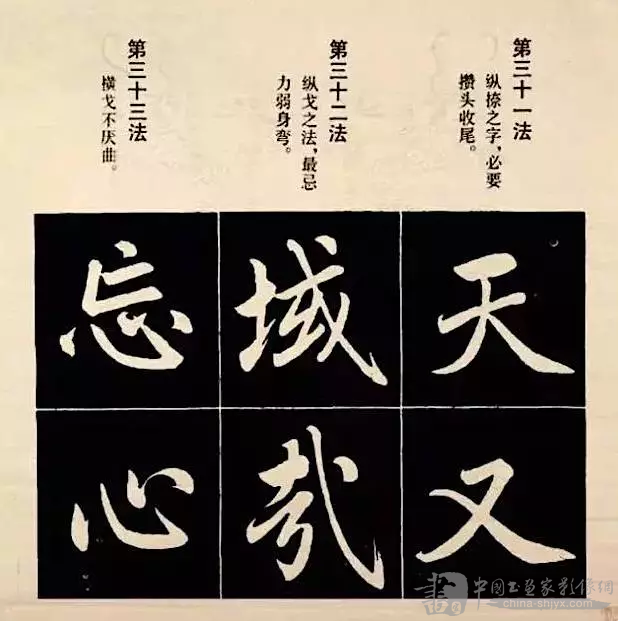 第三十一法
纵捺之字，必要
攒头收尾。
第三十二法
纵戈之法，最忌
力弱身弯。
第三十三法
横戈不厌曲。
天
又
域
哉
忘
心
書
中國书画家影像網
china-shjyx.com